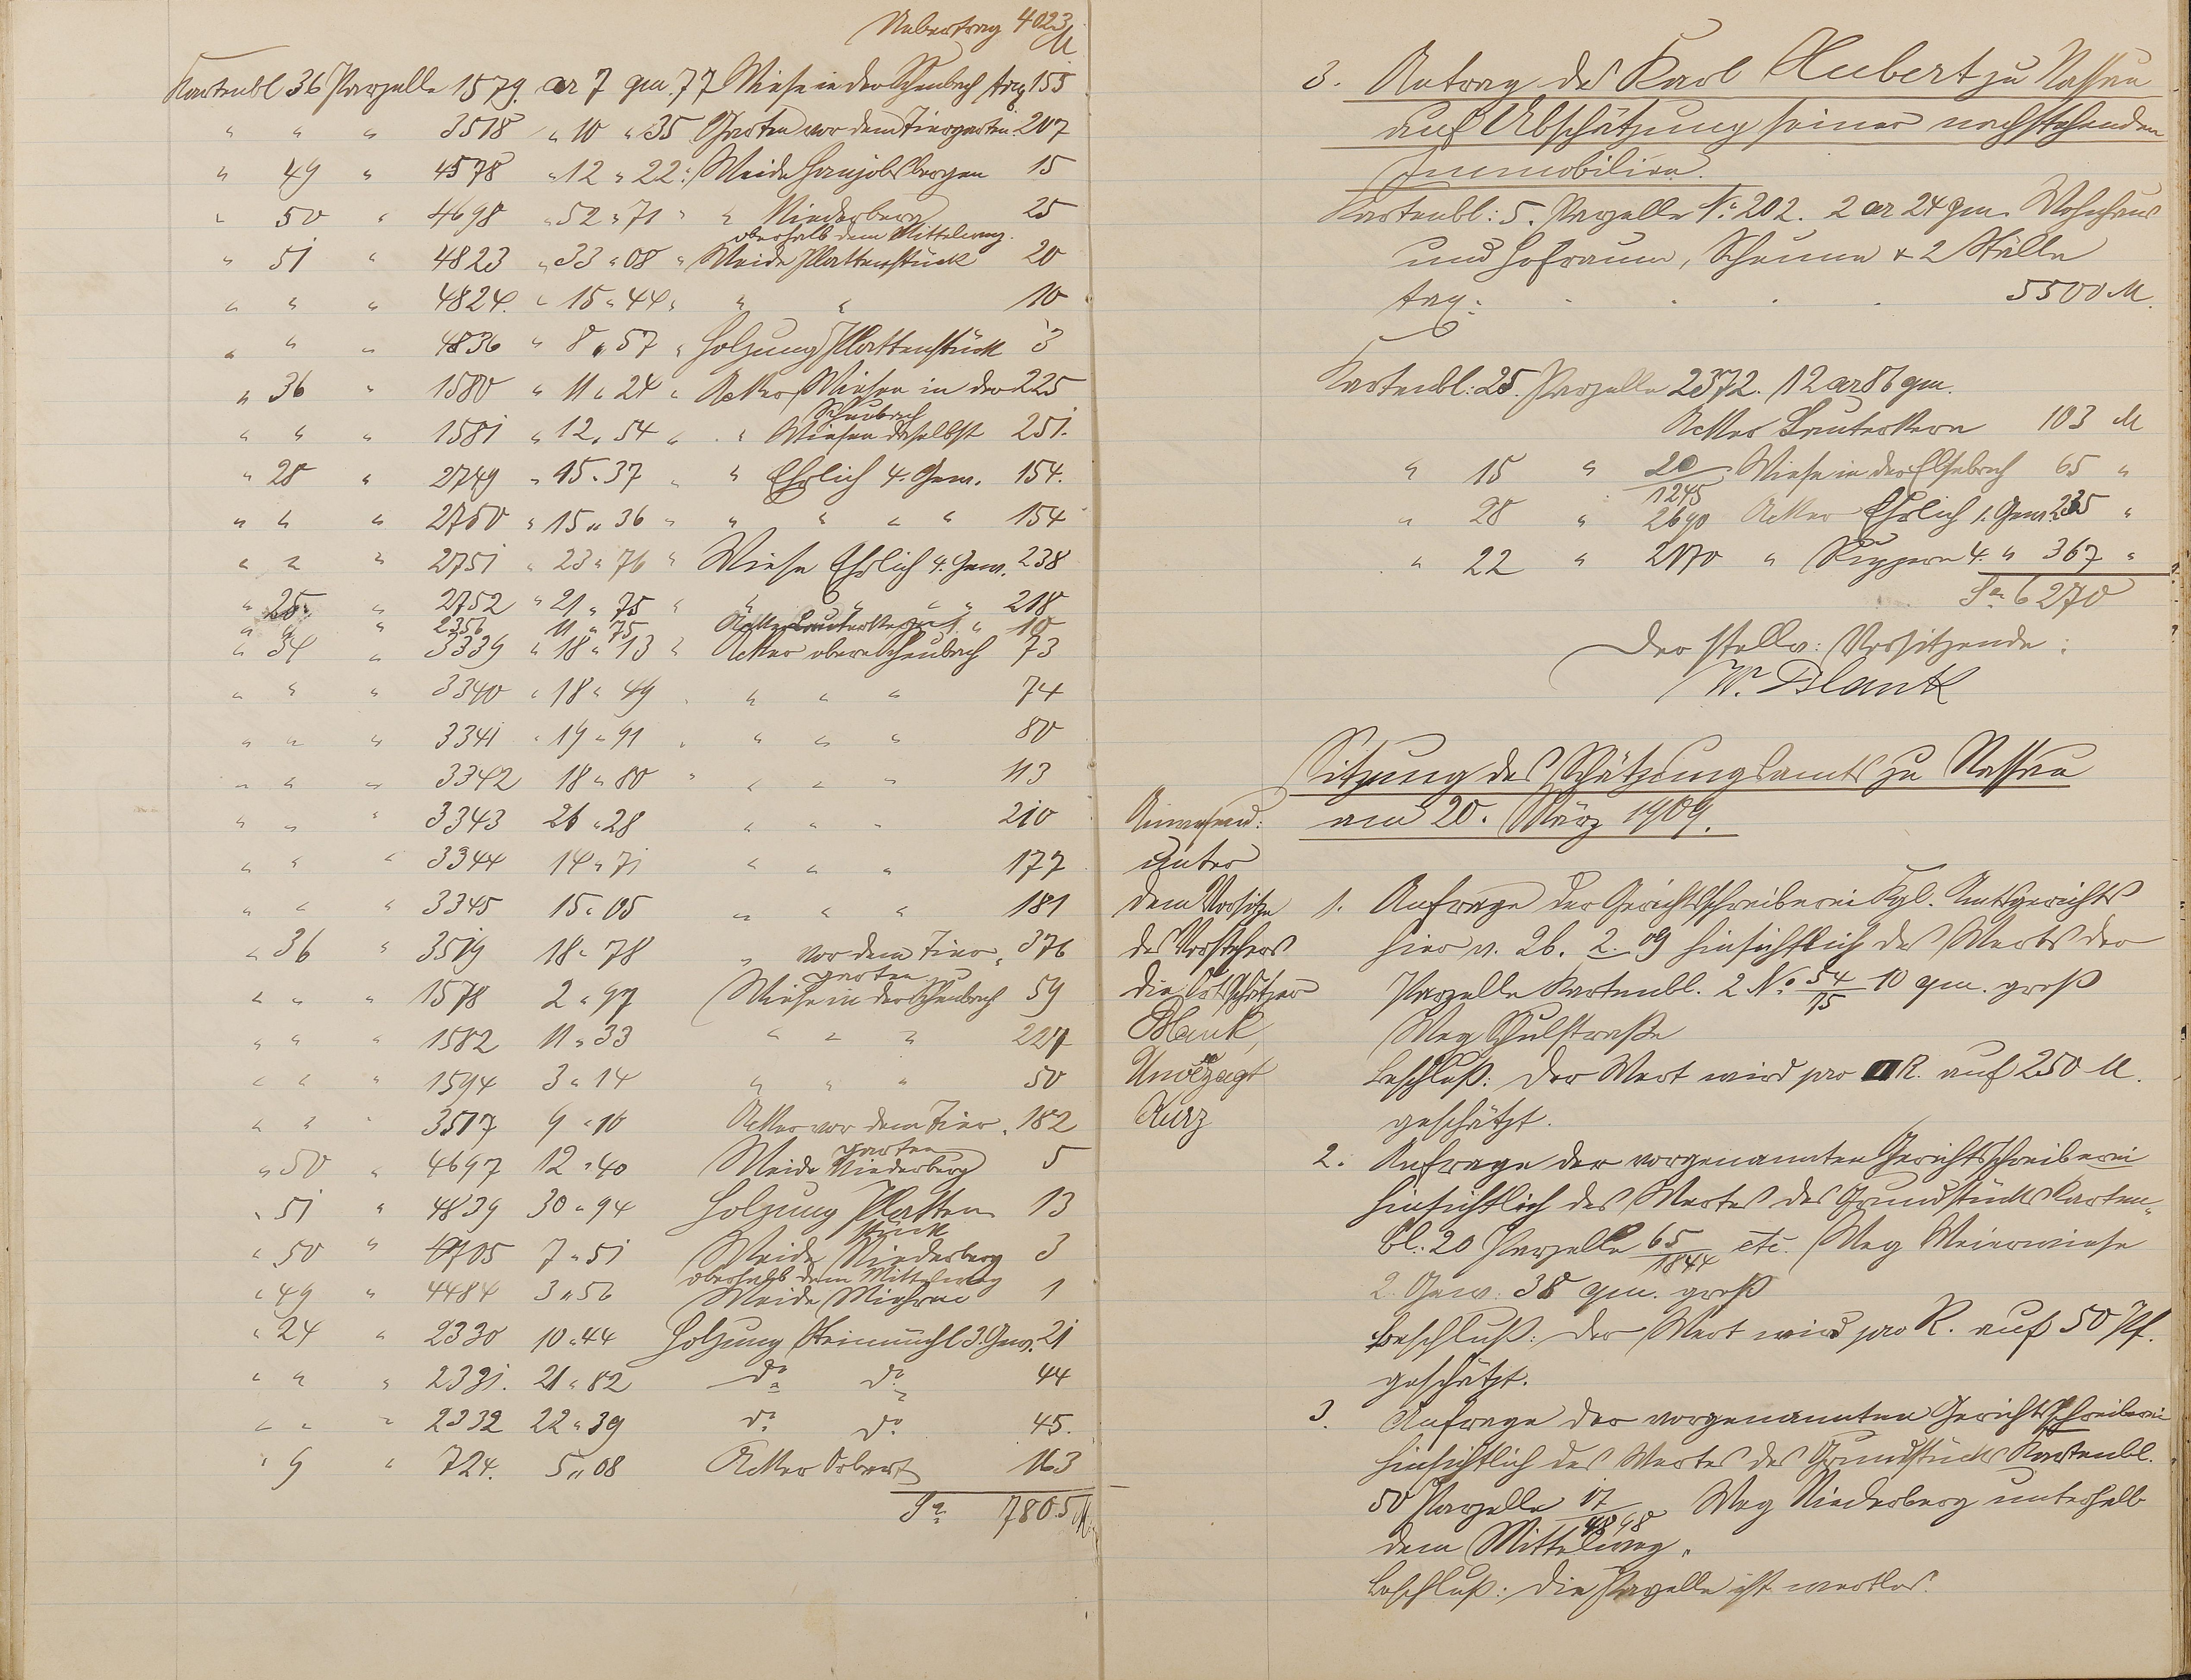 Uebertrag 4023 M
Kartenbl 36 Parzelle 1579. ar 7 qm. 77 Wiese in der Scheubach tax 155
" " " 3518 " 10 " 35 Garten vor dem Tiergarten 207
" 49 " 4578 " 12 " 22 : Weide 15
" 50 " 4698 " 52 " 71 " " Niederberg 25
oberhalb dem Mittelweg.
" 51 " 4823 " 33 " 08 " Weide Plattenstück 20
" " " 4824. " 15 " 44 " " " 10
" " " 4836 " 8 " 57 " Holzung Plattenstück 3
" 36 " 1580 " 11 " 24 " Acker Wiesen in der 225
Scheubach
" " " 1581 " 12 " 54 " " Wiesen daselbst 251.
" 28 " 2749 " 15 " 37 " " Ehrlich 4. Gew. 154.
" " " 2750 " 15 " 36 " " " " " 154
" " " 2751 " 23 " 76 " Wiese Ehrlich 4. Gew. 238
" " " 2752 " 21 " 75 " " " " " 218
" 25 " 2356 11 " 75 Acker Lauterkern 1. " 10
" 34 " 3339 " 18 " 13 " Acker obere Scheubach 73
" " " 3340 " 18 " 49 " " " " 74
" " " 3341 " 19 " 91 " " " " 80
" " " 3342 18 " 80 " " " " 113
" " " 3343 26 " 28 " " " 210
" " " 3344 14 " 71 " " " 177
" " " 3345 15 " 05 " " " 181
" 36 " 3519 18 " 78 " vor dem Tier- 376
garten
" " " 1578 2 " 97 Wiese in der Scheubach 59
" " " 1582 11 " 33 " " " 227
" " " 1594 3 " 14 " " " 50
" " " 3517 9 " 10 Acker vor dem Tier- 182
garten
" 50 " 4697 12 " 40 Weide Niederberg 5
" 51 " 4839 30 " 94 Holzung Platten- 13
stück
" 50 " 4705 7 " 51 Weide Niederberg 3
oberhalb dem Mittelweg
" 49 " 4484 3 " 56 Weide 1
" 24 " 2330 10 " 44 Holzung 3. Gew. 21
" " " 2331. 21 " 82 do do 44
" " " 2332 22 " 39 do do 45.
" 9 " 724. 5 " 08 Acker 163
Sa. 7805 M.
3. Antrag des Karl Hubert zu Nassau
auf Abschätzung seiner nachstehenden
Immobilien.
Kartenbl: 5. Parzelle No. 202. 2 ar 24 qm. Wohnhaus
und Hofraum, Scheune + 2 Ställe
tax: . . . . 5500 M.
Kartenbl: 25. Parzelle 2372. 12 ar 86 qm.
Acker Lauterkern 103 M
" 15 " 20/1245 Wiese in der Elsebach 65 "
" 28 " 2690 Acker Ehrlich 1. Gew. 235 "
" 22 " 2170 " 4. " 367 "
Sa. 6270
Der stellv: Vorsitzende:
W. Blank
Sitzung des Schätzungsamts zu Nassau
am 20. März 1909.
Anwesend:
unter
dem Vorsitze
des Vorstehers
die Ortsschätzer
Blank,
Unverzagt
Kurz
1. Anfrage der Gerichtsschreiberei Kgl. Amtsgerichts
hier v. 26. 2. 09 hinsichtlich des Werts der
Parzelle Kartenbl. 2 No. 54/75 10 qm. groß
Weg Schulstraße
Beschluß: Der Wert wird pro R. auf 250 M.
geschätzt.
2. Anfrage der vorgenannten Gerichtsschreiberei
hinsichtlich des Wertes des Grundstücks Karten-
bl. 20 Parzelle 65/1844 etc. Weg Weierwiese
2. Gew. 38 qm. groß
Beschluß: Der Wert wird pro R. auf 50 Pf.
geschätzt.
3. Anfrage der vorgenannten Gerichtsschreiberei
hinsichtlich des Wertes des Grundstücks Kartenbl.
50 Parzelle 17/4898 Weg Niederberg unterhalb
dem Mittelweg.
Beschluß: Die Parzelle ist wertlos.